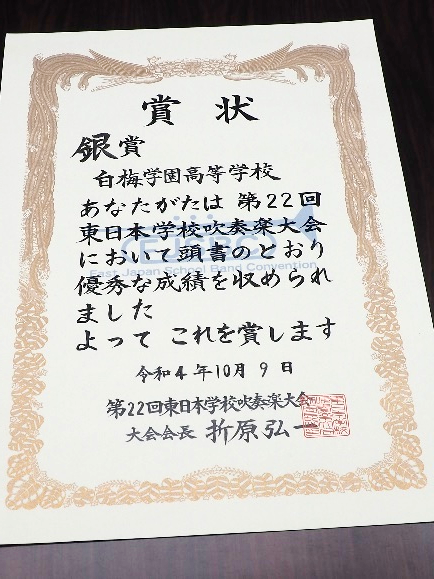 賞状
銀賞
白梅学園高等学校
あなたがたは 第22回
東日本学校吹奏楽大会
において頭書のとおり
優秀な成績を収められ
ました
よって これを賞します
令和4年10月9日
第22回東日本学校吹奏楽大会
大会会長 折原弘一
EJSBC
East Japan School Band Convention